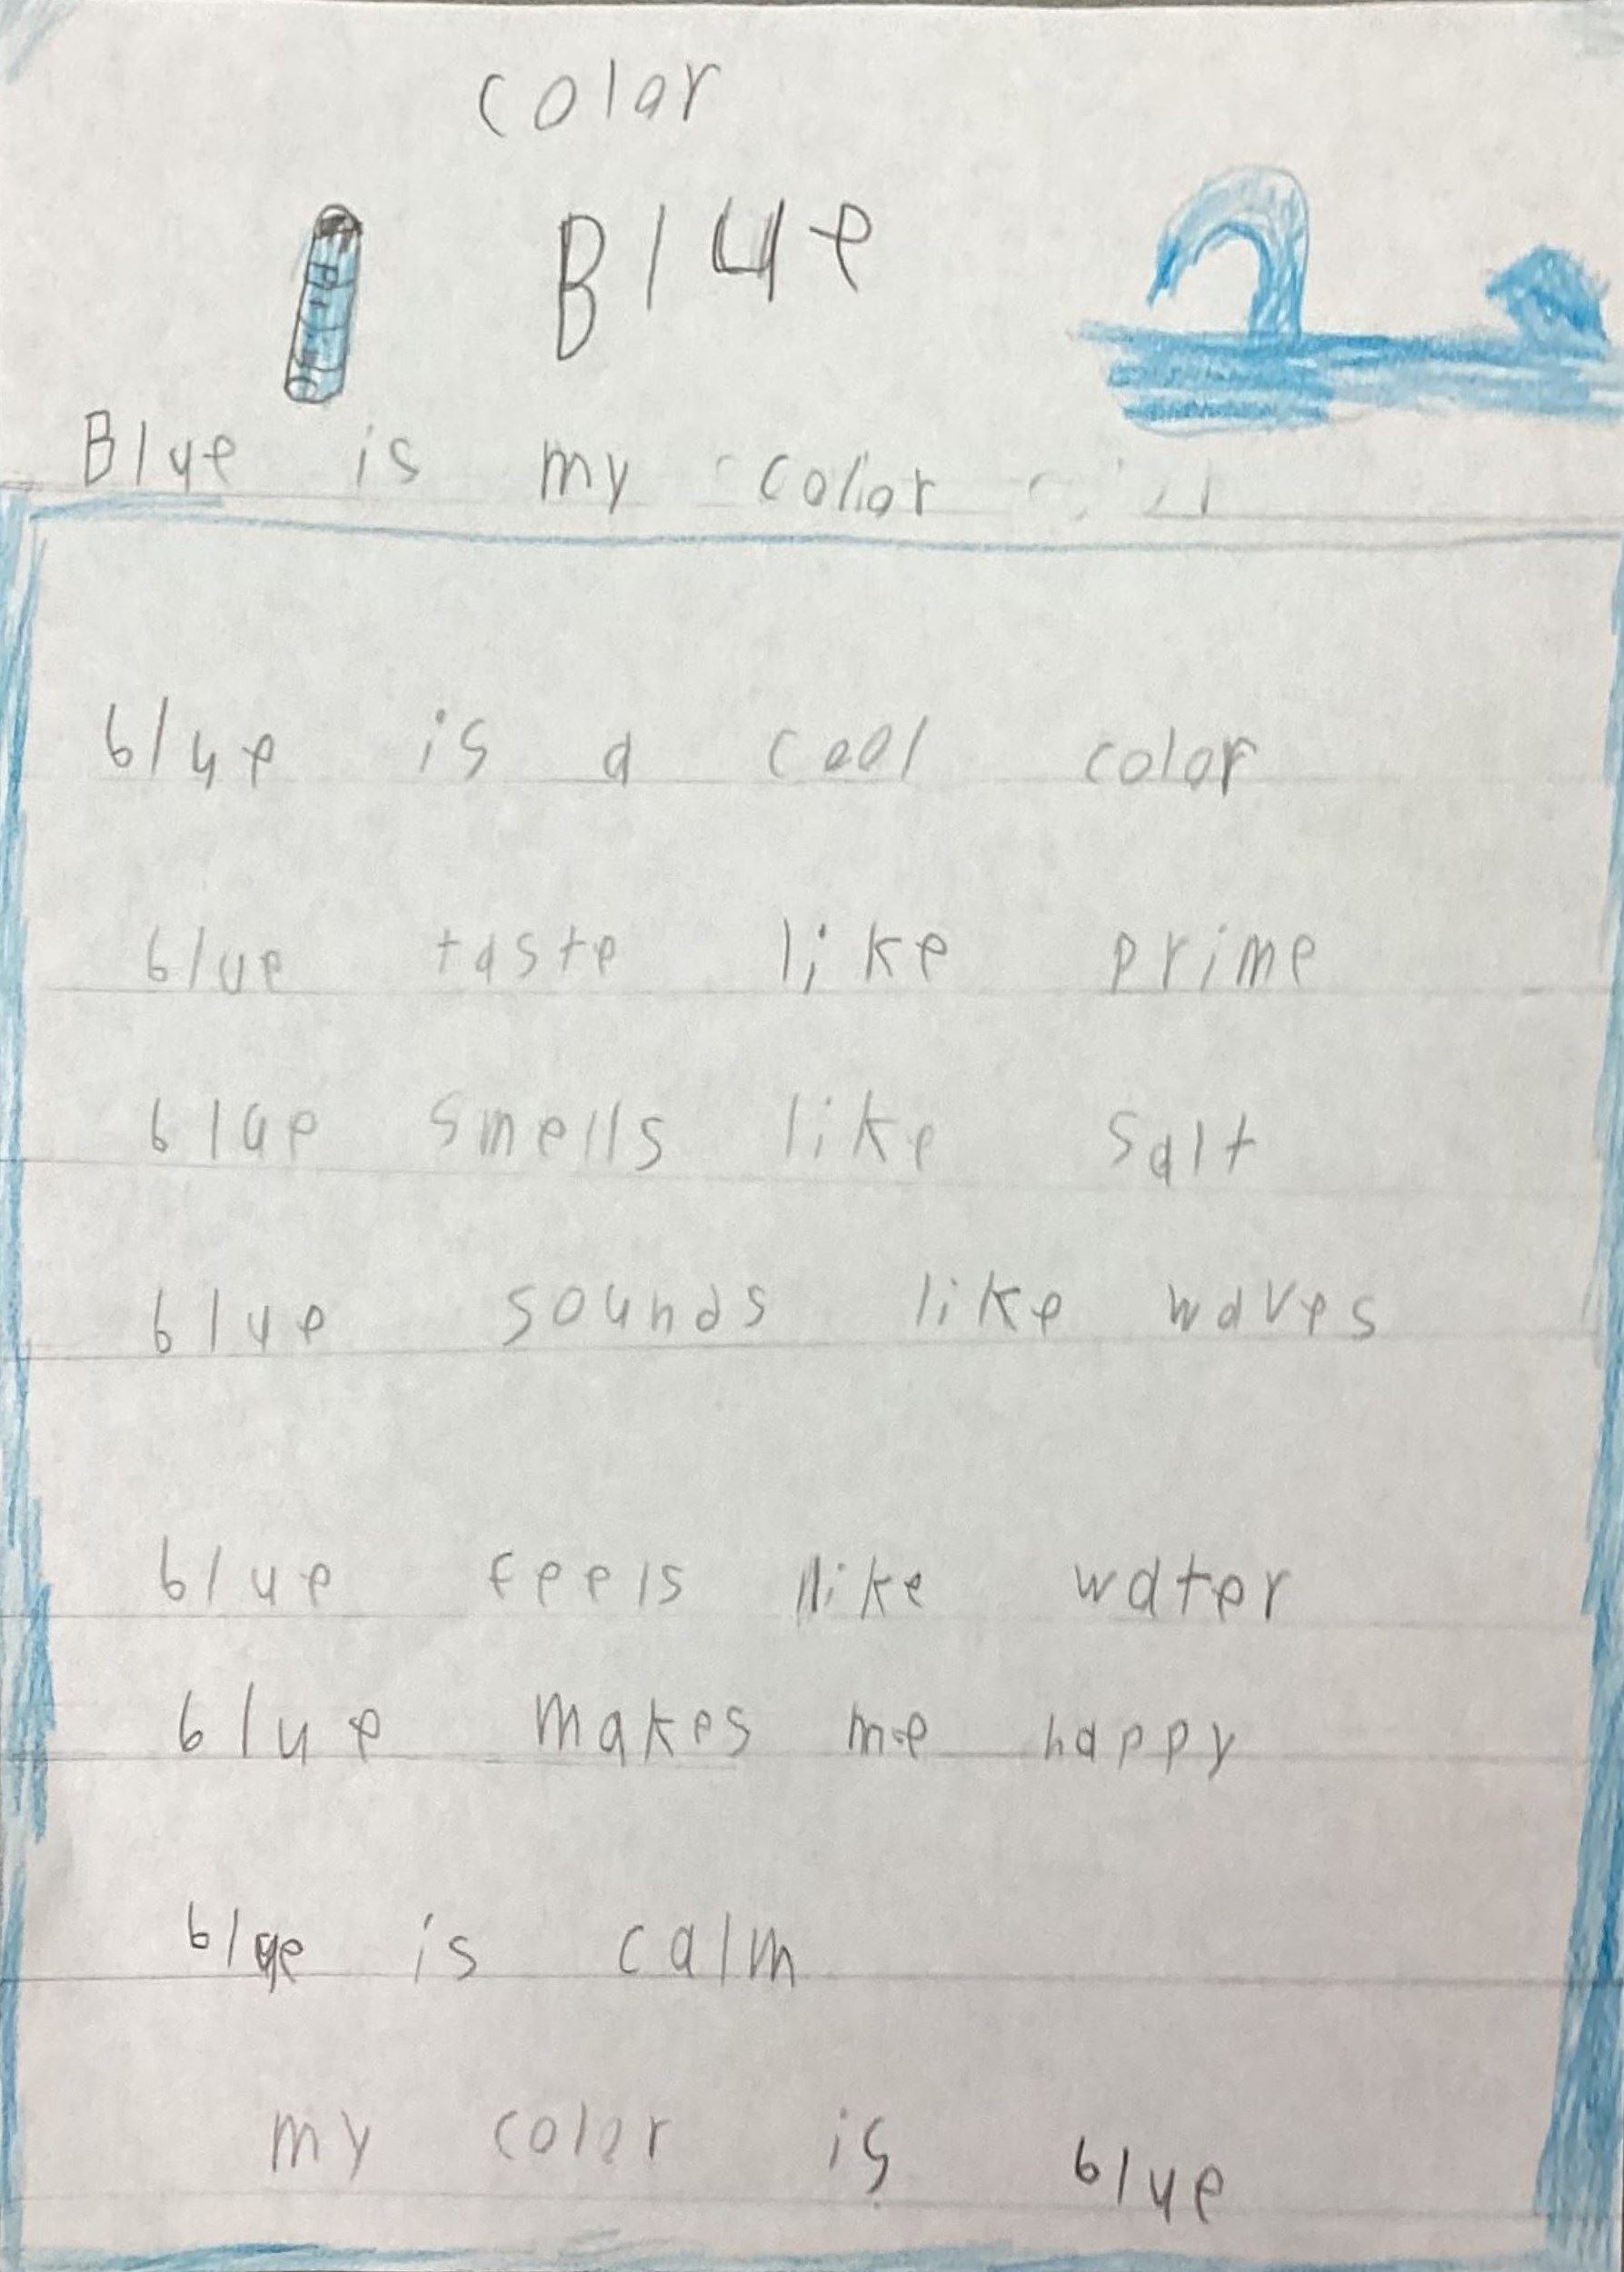 color
Blue
Blue is my color
blue is a cool color
blue taste like prime
blue smells like salt
blue sounds like waves
blue feels like water
blue makes me happy
blue is calm
my color is blue